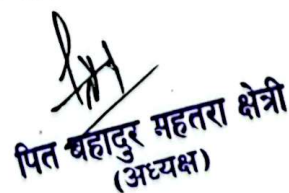 पित बहादुर महतरा क्षेत्री
(अध्यक्ष)